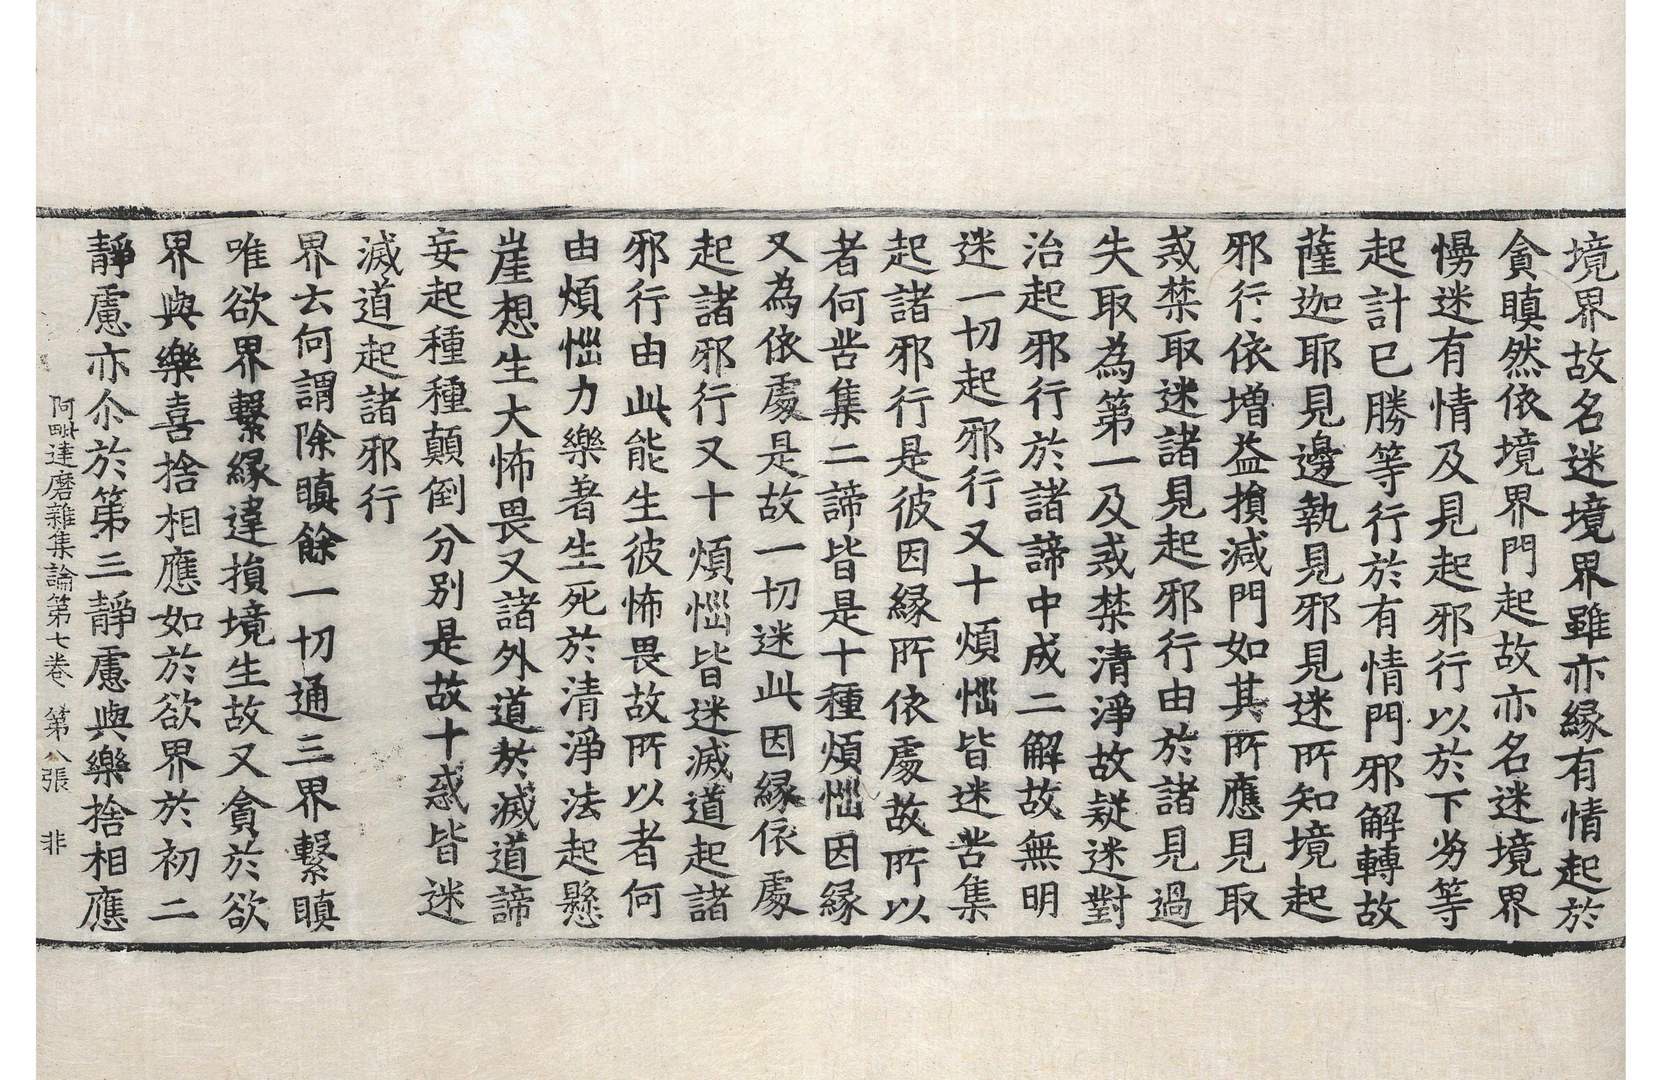 境界故名迷境界雖亦緣有情起於
貪瞋然依境界門起故亦名迷境界
慢迷有情及見起邪行以於下劣等
起計已勝等行於有情門邪解轉故
薩迦耶見邊執見邪見迷所知境起
邪行依增益損減門如其所應見取
戒禁取迷諸見起邪行由於諸見過
失取為第一及戒禁清淨故疑迷對
治起邪行於諸諦中成二解故無明
迷一切起邪行又十煩惱皆迷苦集
起諸邪行是彼因緣所依處故所以
者何苦集二諦皆是十種煩惱因緣
又為依處是故一切迷此因緣依處
起諸邪行又十煩惱皆迷滅道起諸
邪行由此能生彼怖畏故所以者何
由煩惱力樂著生死於清淨法起懸
崖想生大怖畏又諸外道於滅道諦
妄起種種顛倒分別是故十惑皆迷
滅道起諸邪行
界云何謂除瞋餘一切通三界繫瞋
唯欲界繫緣違損境生故又貪於欲
界與樂喜捨相應如於欲界於初二
靜慮亦尒於第三靜慮與樂捨相應
阿毗達磨雜集論第七卷 第八張 非